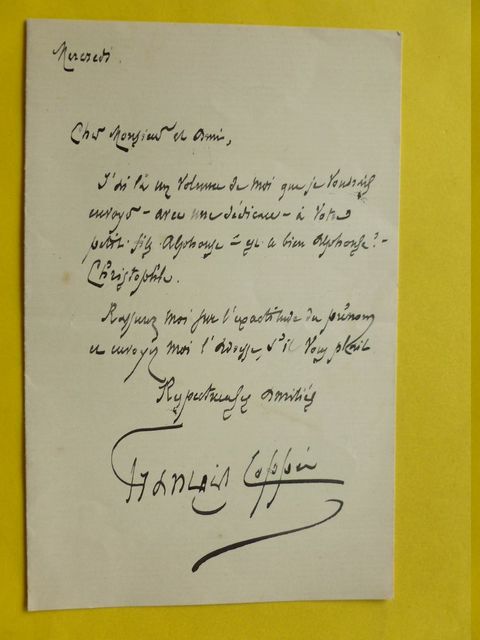 Mercredi.
Cher Monsieur et Ami,
J'ai là un volume de moi que je voudrais
envoyer – avec une dédicace – à votre
petit-fils Alphonse – est-ce bien Alphonse ? –
Christophle.
Rassurez moi sur l'exactitude du prénom
et envoyez moi l'adresse, s'il vous plaît
Respectueuses amitiés
François Coppée